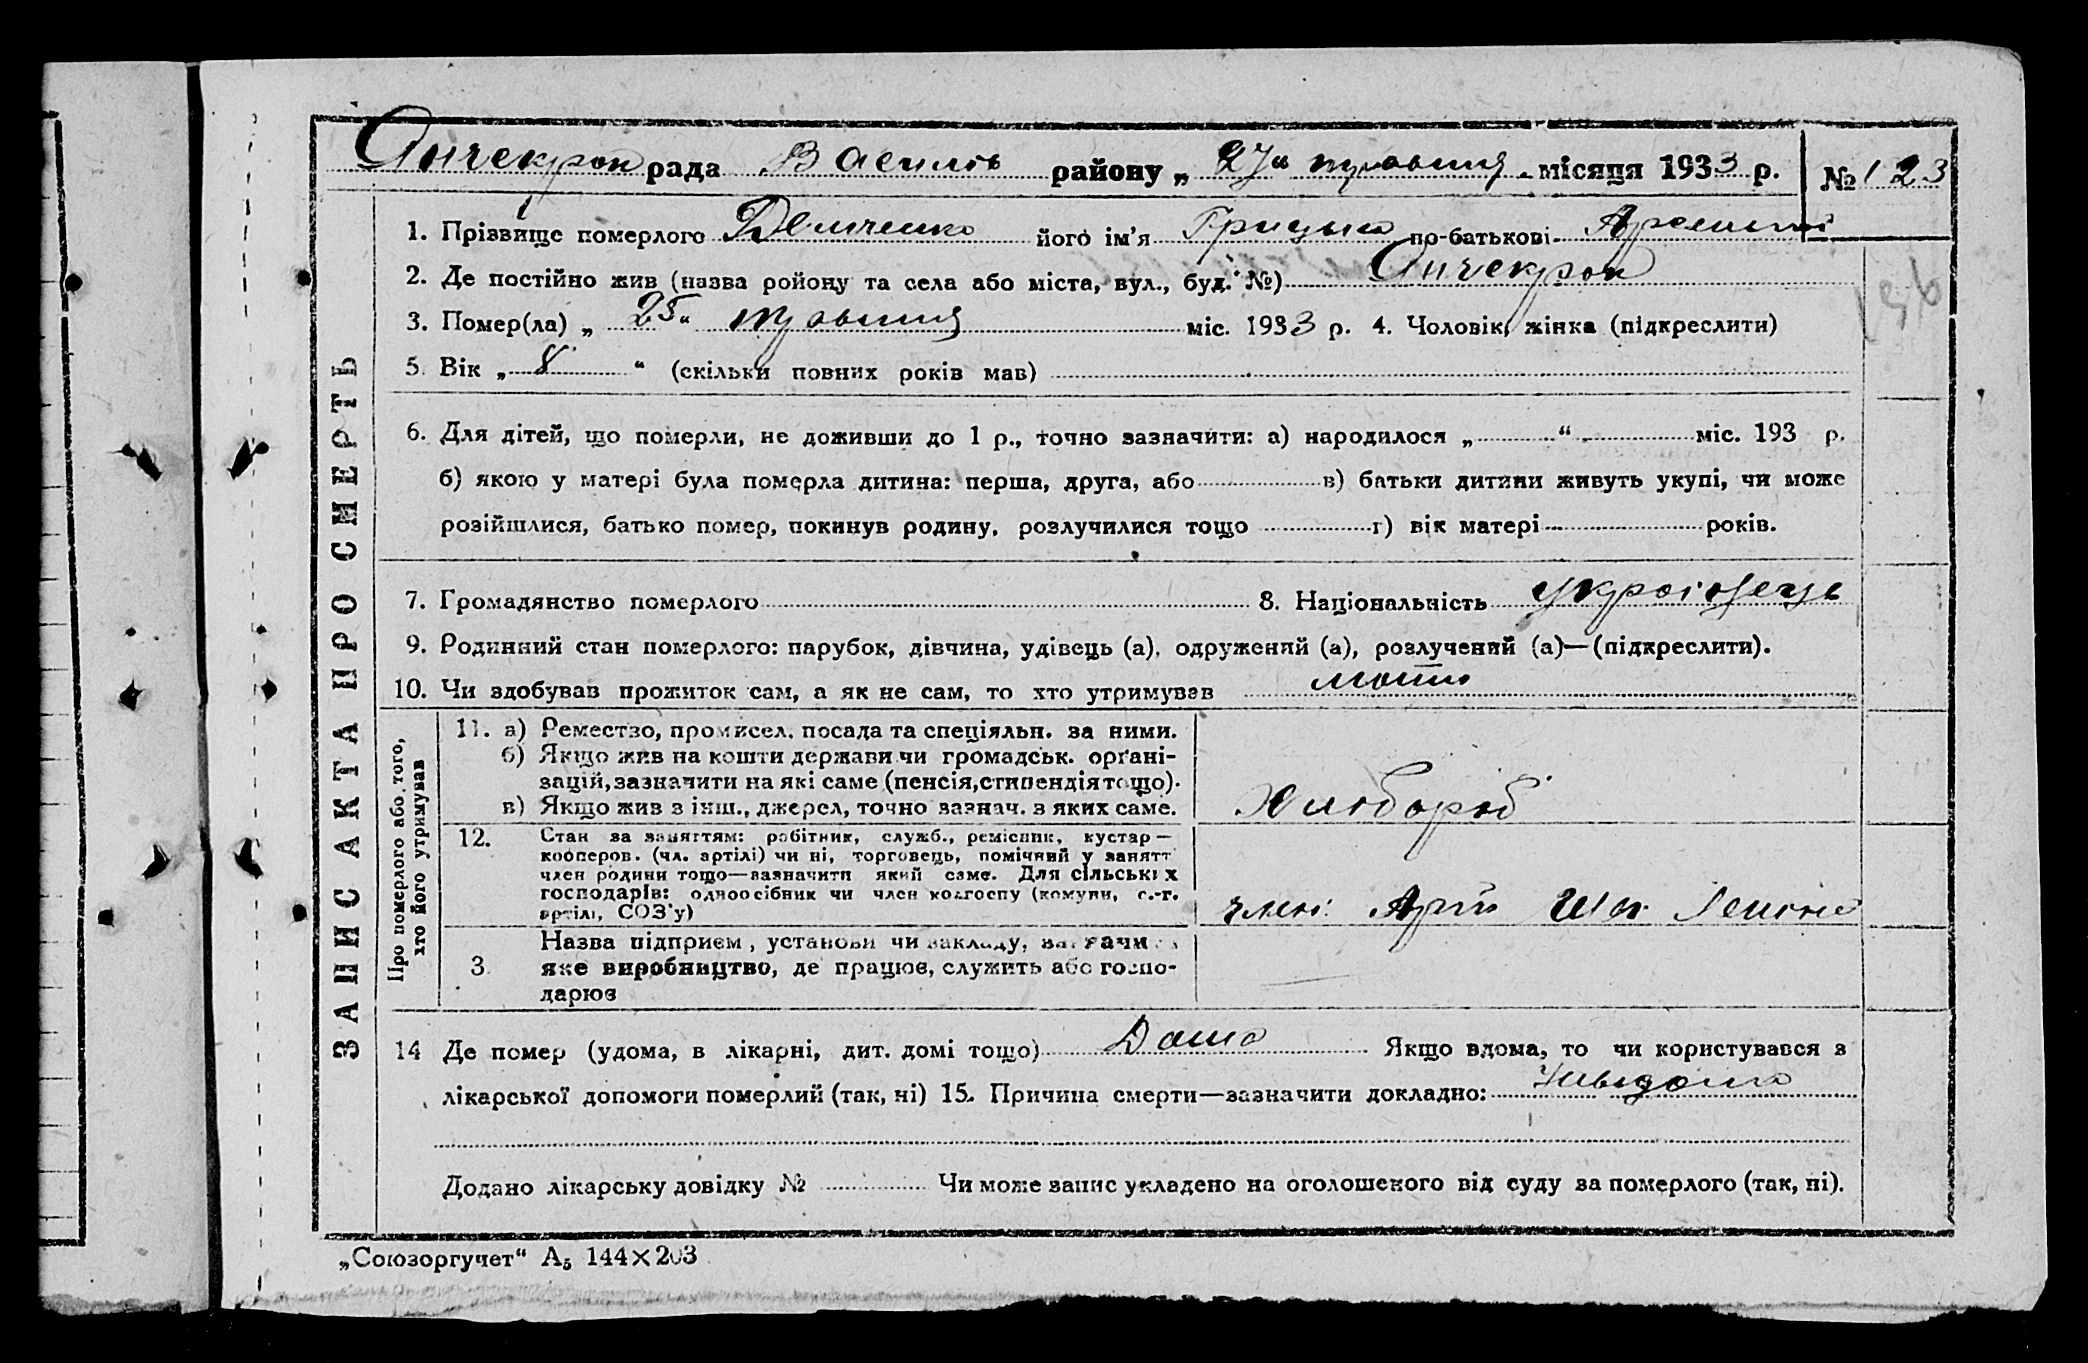 Анчекрак рада Василів району „ 27 “ травня місяця 1933 р. № 123
1. Прізвище померлого Демченко його ім’я Грицько по-батькові
2. Де постійно жив (назва ройону та села або міста, вул., буд. №) Анчекрак
3. Помер(ла) „ 25 “ травня міс. 1933 р. 4. Чоловік, жінка (підкреслити)
5. Вік „ 8 “ (скільки повних років мав)
6. Для дітей, що померли, не доживши до 1 р., точно зазначити: а) народилося „ “ міс. 193 р.
б) якою у матері була померла дитина: перша, друга, або в) батьки дитини живуть укупі, чи може
розійшлися, батько помер, покинув родину, розлучилися тощо г) вік матері років.
7. Громадянство померлого 8. Національність україңець
9. Родинний стан померлого: парубок, дівчина, удівець (а), одружений (а), розлучений (а)—(підкреслити).
10. Чи здобував прожиток сам, а як не сам, то хто утримував мати
ЗАПИС АКТА ПРО СМЕРТЬ
Про померлого або того, хто його утримував
11. а) Ремество, промисел, посада та спеціяльн. за ними.
б) Якщо жив на кошти держави чи громадськ. орґані-
зацій, зазначити на які саме (пенсія, стипендія тощо).
в) Якщо жив з інш., джерел, точно зазнач. з яких саме. Хлібороб
12. Стан за заняттям: робітник, служб., ремісник, кустар —
кооперов. (чл. артілі) чи ні, торговець, помічний у занятт
член родини тощо—зазначити який саме. Для сільських
господарів: одноосібник чи член колгоспу (комуни, с.-г.
артілі, СОЗ’у) член Арті Леніна
Назва підприєм, установи чи закладу, зазначи
3. яке виробництво, де працює, служить або госпо-
дарює
14 Де помер (удома, в лікарні, дит. домі тощо) Дома Якщо вдома, то чи користувався з
лікарської допомоги померлий (так, ні) 15. Причина смерти—зазначити докладно: Невідома
Додано лікарську довідку № Чи може запис укладено на оголошеного від суду за померлого (так, ні).
„Союзоргучет“ А₅ 144×203